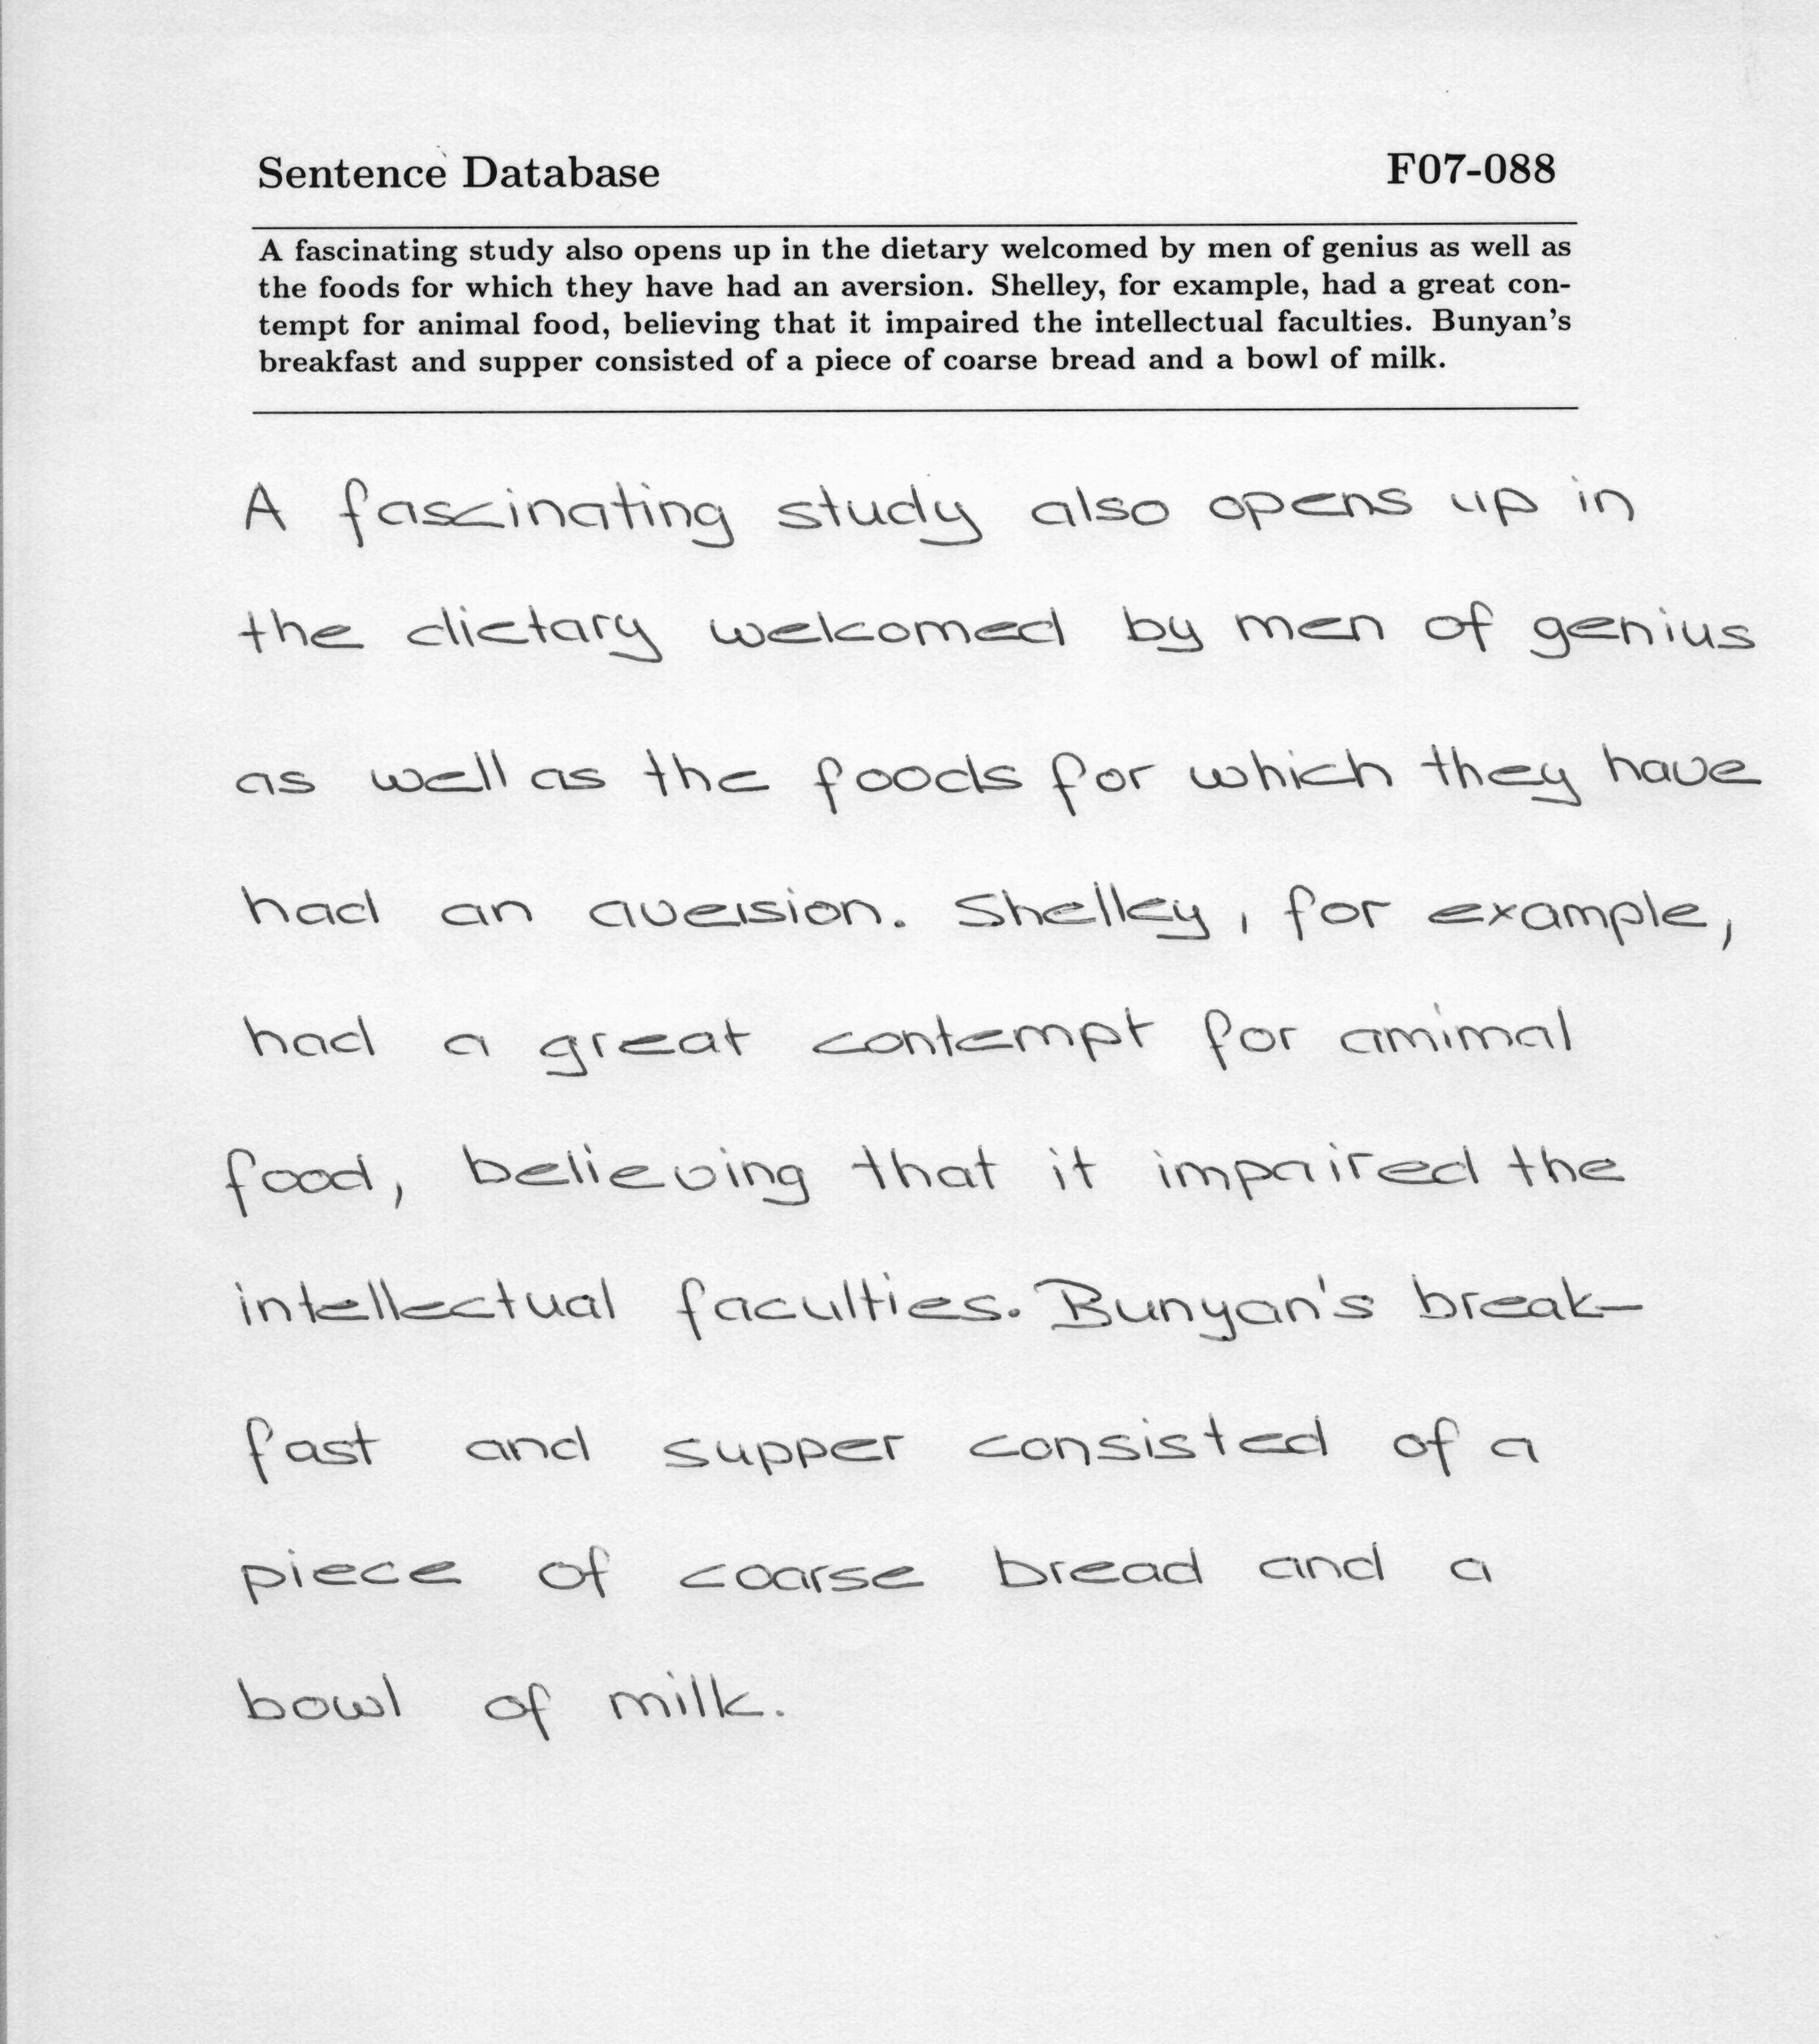 Sentence Database F07-088
A fascinating study also opens up in the dietary welcomed by men of genius as well as
the foods for which they have had an aversion. Shelley, for example, had a great con-
tempt for animal food, believing that it impaired the intellectual faculties. Bunyan's
breakfast and supper consisted of a piece of coarse bread and a bowl of milk.
A fascinating study also opens up in
the dietary welcomed by men of genius
as well as the foods for which they have
had an aversion. Shelley, for example,
had a great contempt for amimal
food, believing that it impaired the
intellectual faculties. Bunyan's break-
fast and supper consisted of a
piece of coarse bread and a
bowl of milk.